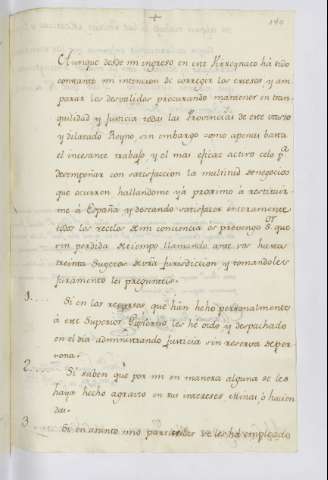 190
Aunque desde mi ingreso en este Virreynato há sido
constante mi intencion de corregir los excesos y am-
parar los desvalidos procurando mantener en tran-
quilidad y Justicia todas las Provincias de este vasto
y delatado Reyno, sin embargo como apenas basta
el incesante trabajo y el mas eficaz activo celo pa
desempeñar con satisfaccion la multitud de negocios
que ocurren hallandome yá proximo à restituir-
me à España y deseando satisfacer enteramente
todos los recelos de mi conciencia os prevengo que
sin perdida de tiempo llamando ante vos hasta
treinta Sugetos de vuestra Jurisdiccion y tomandoles
juramento les pregunteis.
1. Si en los recursos que hán hecho personalmente
á este Superior Govierno les he oido y despachado
en el dia administrando justicia sin reserva de per-
sona.
2. Si saben que por mi en manera alguna se les
haya hecho agravio en sus intereses, Minas, ó hacien-
das.
3. Si en asunto mio particular se les há empleado